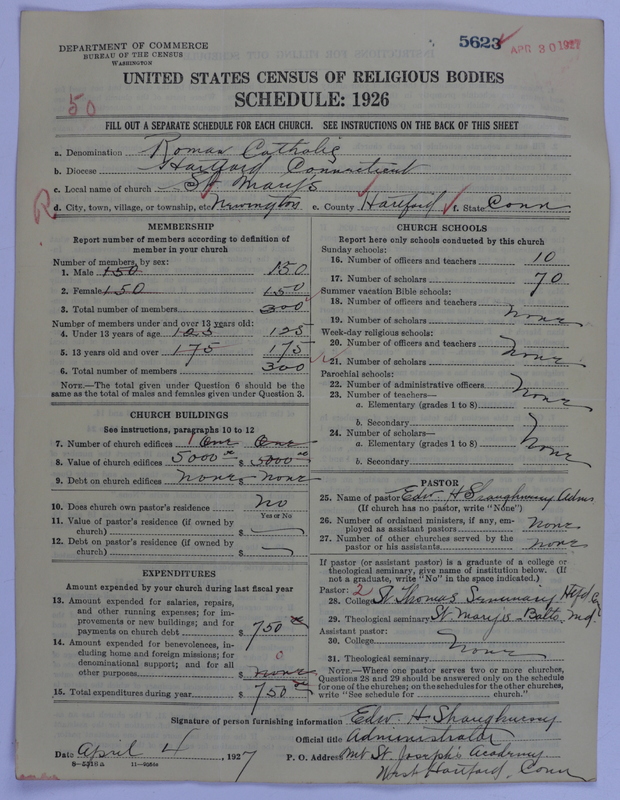 DEPARTMENT OF COMMERCE
BUREAU OF THE CENSUS
WASHINGTON
5623 APR 30 1927
UNITED STATES CENSUS OF RELIGIOUS BODIES
SCHEDULE: 1926
50
FILL OUT A SEPARATE SCHEDULE FOR EACH CHURCH. SEE INSTRUCTIONS ON THE BACK OF THIS SHEET
a. Denomination Roman Catholic
b. Diocese Hartford Connecticut
c. Local name of church St Mary's
d. City, town, village, or township, etc. Newington e. County Hartford f. State Conn
R
MEMBERSHIP
Report number of members according to definition of
member in your church
Number of members, by sex:
1. Male 150 150
2. Female 150 150
3. Total number of members 300
Number of members under and over 13 years old:
4. Under 13 years of age 125 125
5. 13 years old and over 175 175
6. Total number of members 300
NOTE.—The total given under Question 6 should be the
same as the total of males and females given under Question 3.
CHURCH BUILDINGS
See instructions, paragraphs 10 to 12
7. Number of church edifices 1 One One
8. Value of church edifices 5000 $ 5000
9. Debt on church edifices none $ none
10. Does church own pastor's residence no
Yes or No
11. Value of pastor's residence (if owned by
church) $
12. Debt on pastor's residence (if owned by
church) $
EXPENDITURES
Amount expended by your church during last fiscal year
13. Amount expended for salaries, repairs,
and other running expenses; for im-
provements or new buildings; and for
payments on church debt $ 750
14. Amount expended for benevolences, in-
cluding home and foreign missions; for
denominational support; and for all
other purposes $ none 0
15. Total expenditures during year $ 750
CHURCH SCHOOLS
Report here only schools conducted by this church
Sunday schools:
16. Number of officers and teachers 10
17. Number of scholars 70
Summer vacation Bible schools:
18. Number of officers and teachers
19. Number of scholars None
Week-day religious schools:
20. Number of officers and teachers
21. Number of scholars None
Parochial schools:
22. Number of administrative officers None
23. Number of teachers—
a. Elementary (grades 1 to 8)
b. Secondary
24. Number of scholars—
a. Elementary (grades 1 to 8) None
b. Secondary
PASTOR
25. Name of pastor Edw. H Shaughnessy Adms
(If church has no pastor, write "None")
26. Number of ordained ministers, if any, em-
ployed as assistant pastors none
27. Number of other churches served by the
pastor or his assistants none
If pastor (or assistant pastor) is a graduate of a college or
theological seminary, give name of institution below. (If
not a graduate, write "No" in the space indicated.)
Pastor: 2
28. College St Thomas Seminary Htfd
29. Theological seminary St. Mary's Balto. Md.
Assistant pastor:
30. College None
31. Theological seminary
NOTE.—Where one pastor serves two or more churches,
Questions 28 and 29 should be answered only on the schedule
for one of the churches; on the schedules for the other churches,
write "See schedule for church."
Signature of person furnishing information Edw. H. Shaughnessy
Official title Administrator
Date April 4, 1927 P. O. Address Mt St. Joseph's Academy
West Hartford, Conn
8-5316 a 11-9066